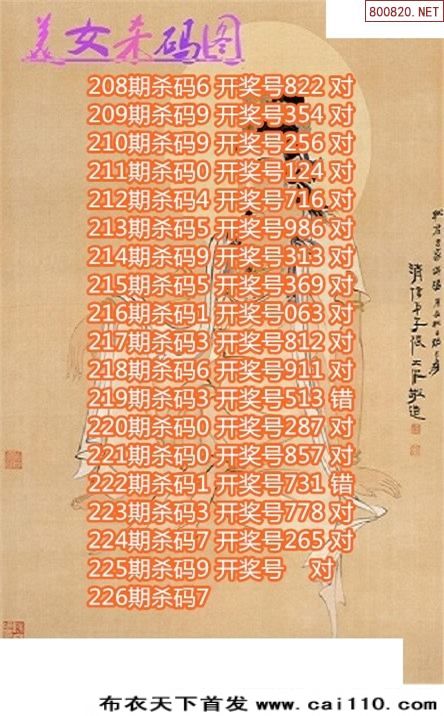 800820.NET
美女杀码图
208期杀码6 开奖号822 对
209期杀码9 开奖号354 对
210期杀码9 开奖号256 对
211期杀码0 开奖号124 对
212期杀码4 开奖号716 对
213期杀码5 开奖号986 对
214期杀码9 开奖号313 对
215期杀码5 开奖号369 对
216期杀码1 开奖号063 对
217期杀码3 开奖号812 对
218期杀码6 开奖号911 对
219期杀码3 开奖号513 错
220期杀码0 开奖号287 对
221期杀码0 开奖号857 对
222期杀码1 开奖号731 错
223期杀码3 开奖号778 对
224期杀码7 开奖号265 对
225期杀码9 开奖号 对
226期杀码7
布衣天下首发 www.cai110.com